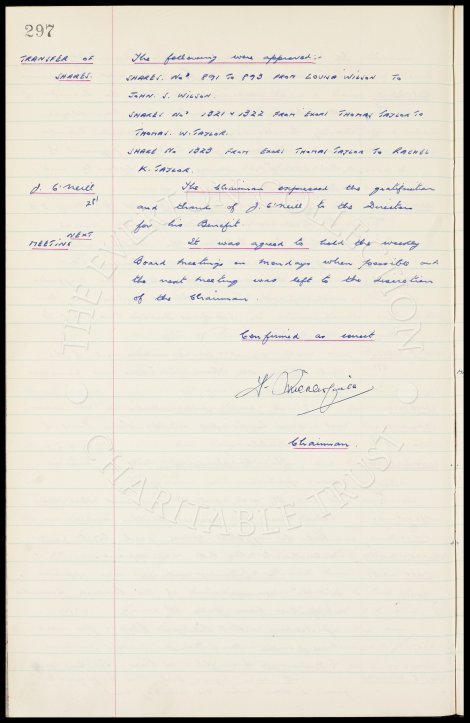 297
TRANSFER OF The following were approved:-
SHARES. SHARES. Nos 891 TO 893 FROM LOUISA WILSON TO
JOHN. S. WILSON.
SHARES Nos 1321 & 1322 FROM EXORS THOMAS TAYLOR TO
THOMAS. W. TAYLOR.
SHARE No 1323 FROM EXORS THOMAS TAYLOR TO RACHEL
K. TAYLOR.
J. O'Neill The Chairman expressed the gratification
and thanks of J. O'Neill to the Directors
for his Benefit.
NEXT It was agreed to hold the weekly
MEETING Board meetings on Mondays when possible and
the next meeting was left to the discretion
of the Chairman.
Confirmed as correct
Chairman.
THE EVERTON COLLECTION
CHARITABLE TRUST